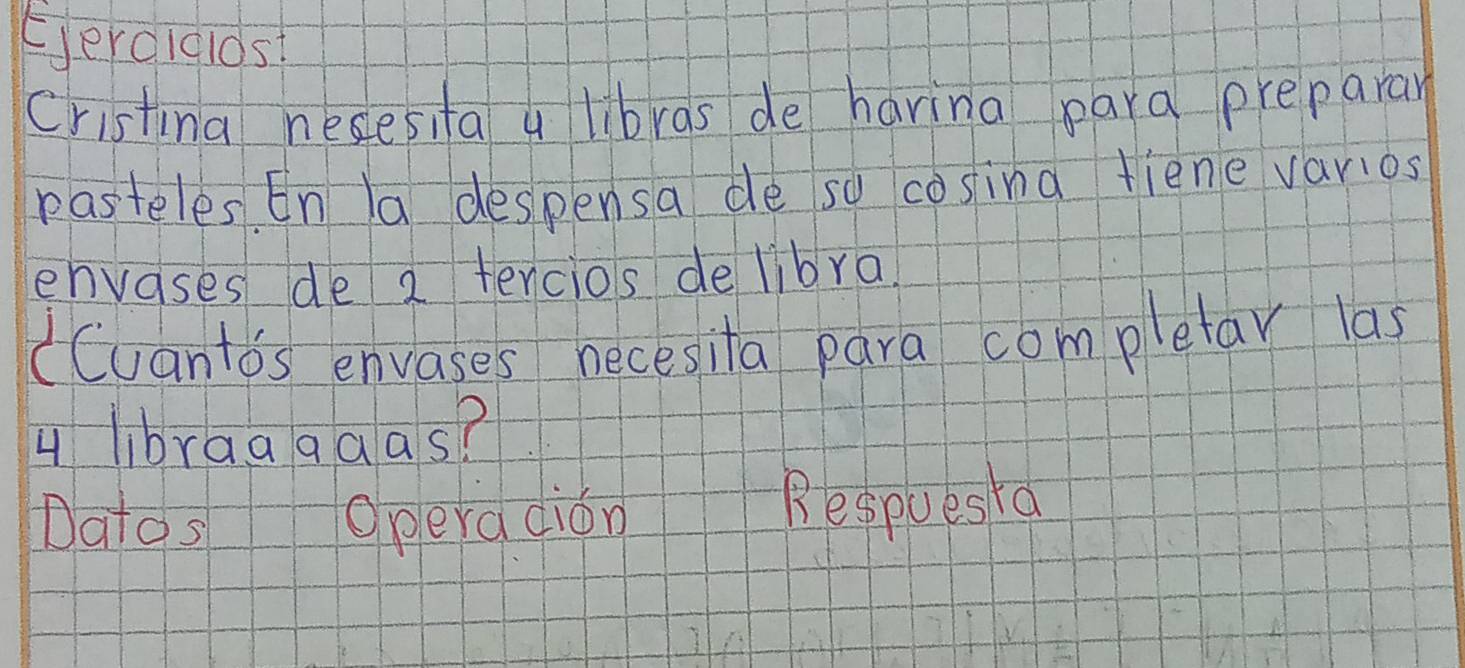 Ejercicios:
Cristina nesesita 4 libras de harina para preparar
pasteles. En la despensa de su cosina tiene varios
envases de 2 tercios de libra.
¿Cuantós envases necesita para completar las
4 libraaaaas?
Datos Operación Respuesta